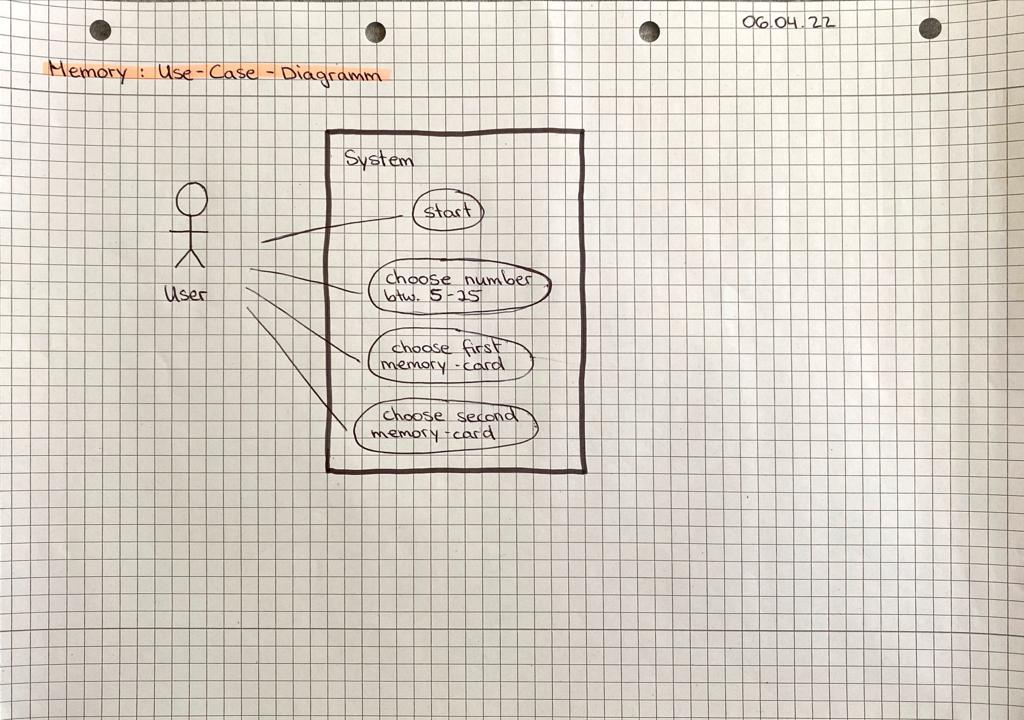 06.04.22
Memory : Use-Case-Diagramm
System
start
choose number
btw. 5-25
choose first
memory-card
choose second
memory-card
User